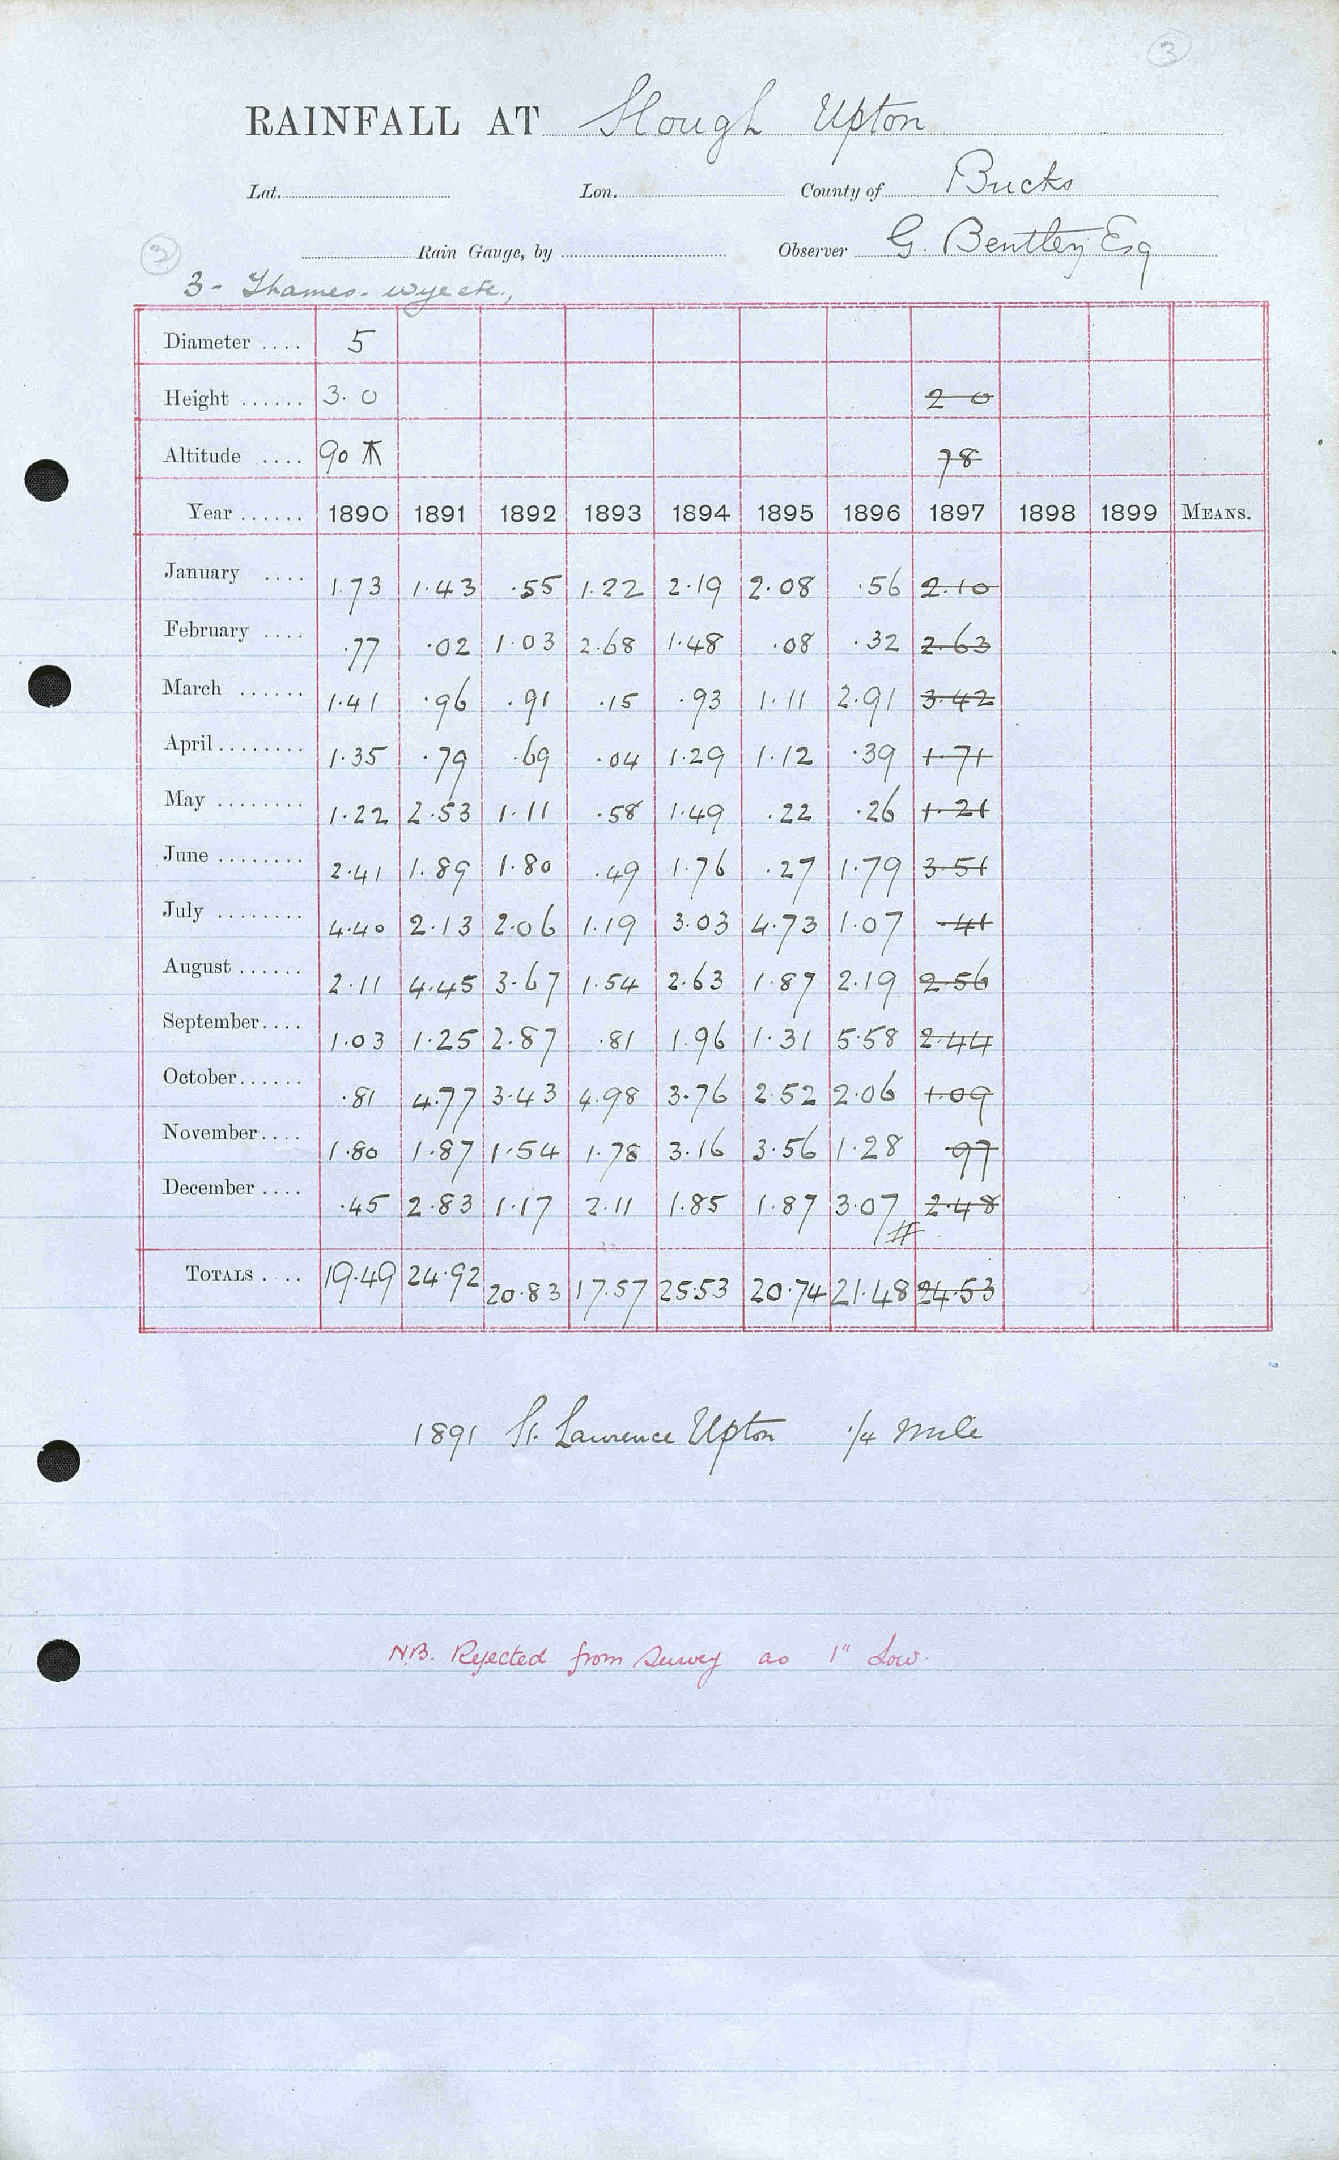 3
RAINFALL AT Slough Upton
Lat. Lon. County of Bucks
3
Rain Gauge, by Observer G. Bentley Esq
3 - Thames - Wye etc.,
Diameter .... 5
Height ...... 3.0 2 0
Altitude .... 90
78
Year ...... 1890 1891 1892 1893 1894 1895 1896 1897 1898 1899 MEANS.
January .... 1.73 1.43 .55 1.22 2.19 2.08 .56 2.10
February .... .77 .02 1.03 2.68 1.48 .08 .32 2.63
March ...... 1.41 .96 .91 .15 .93 1.11 2.91 3.42
April ........ 1.35 .79 .69 .04 1.29 1.12 .39 1.71
May ........ 1.22 2.53 1.11 .58 1.49 .22 .26 1.21
June ........ 2.41 1.89 1.80 .49 1.76 .27 1.79 3.51
July ........ 4.40 2.13 2.06 1.19 3.03 4.73 1.07 .41
August ...... 2.11 4.45 3.67 1.54 2.63 1.87 2.19 2.56
September .... 1.03 1.25 2.87 .81 1.96 1.31 5.58 2.44
October ...... .81 4.77 3.43 4.98 3.76 2.52 2.06 1.09
November .... 1.80 1.87 1.54 1.78 3.16 3.56 1.28 97
December .... .45 2.83 1.17 2.11 1.85 1.87 3.07 2.48
TOTALS .... 19.49 24.92 20.83 17.57 25.53 20.74 21.48 24.53
1891 St. Lawrence Upton 1/4 mile
N.B. Rejected from Survey as 1" Low.